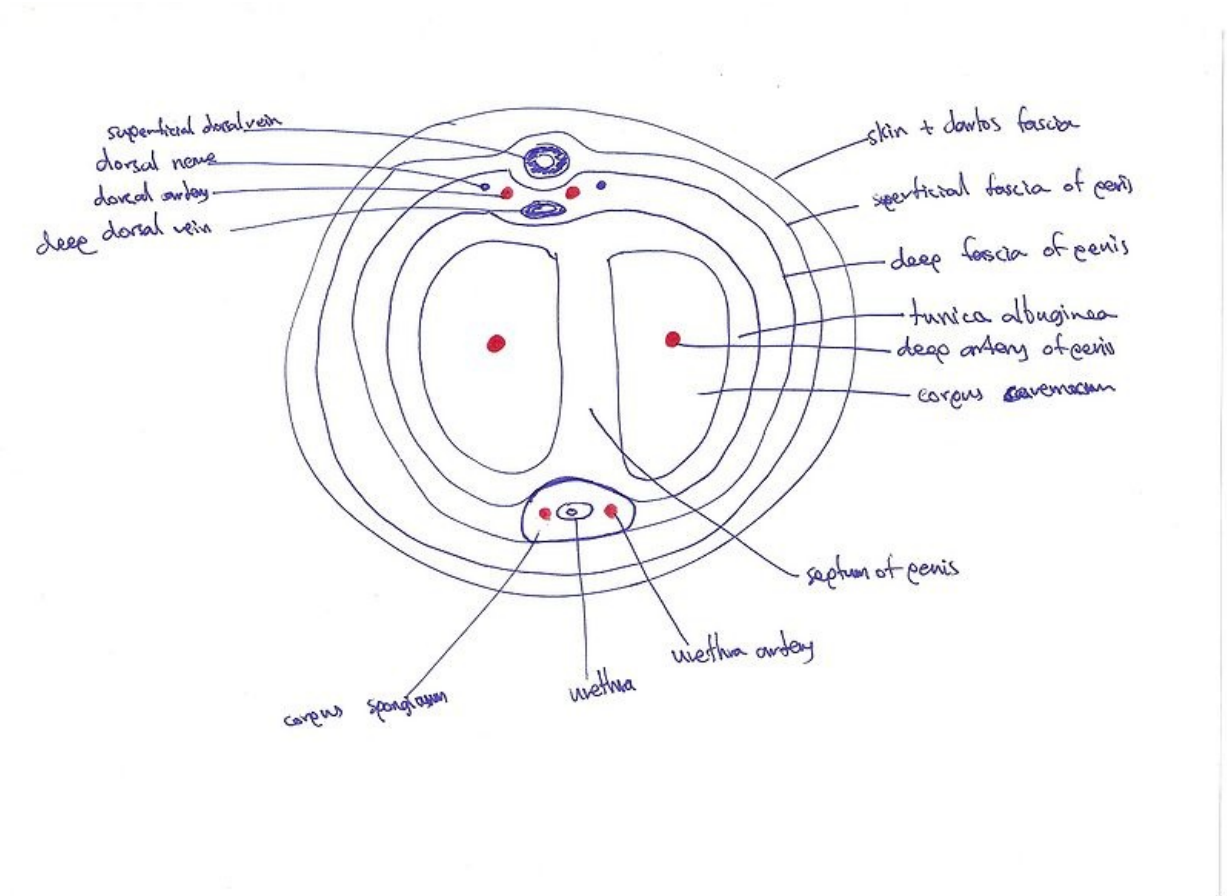 superficial dorsal vein
dorsal nerve
dorsal artery
deep dorsal vein
skin + dartos fascia
superficial fascia of penis
deep fascia of penis
tunica albuginea
deep artery of penis
corpus cavernosum
septum of penis
urethra artery
urethra
corpus spongiosum